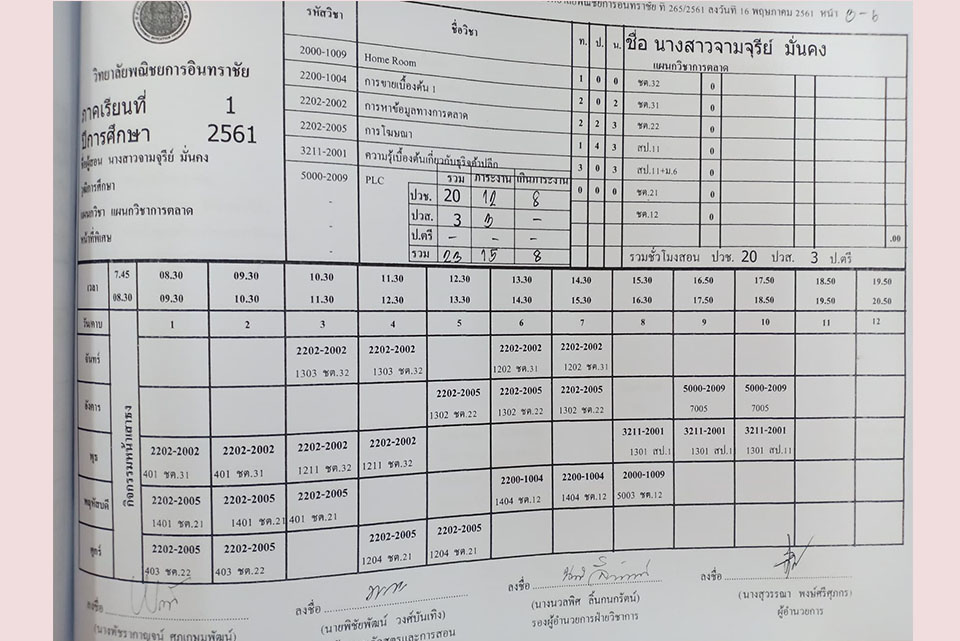 วิทยาลัยพณิชยการอินทราชัย ที่ 265/2561 ลงวันที่ 16 พฤษภาคม 2561 หน้า
วิทยาลัยพณิชยการอินทราชัย
ภาคเรียนที่ 1
ปีการศึกษา 2561
ชื่อผู้สอน นางสาวจามจุรีย์ มั่นคง
วุฒิการศึกษา
แผนกวิชา แผนกวิชาการตลาด
หน้าที่พิเศษ
รหัสวิชา ชื่อวิชา ท. ป. น. ชื่อ นางสาวจามจุรีย์ มั่นคง
แผนกวิชาการตลาด
2000-1009 Home Room 1 0 0 ชต.32 0
2200-1004 การขายเบื้องต้น 1 2 0 2 ชต.31 0
2202-2002 การหาข้อมูลทางการตลาด 2 2 3 ชต.22 0
2202-2005 การโฆษณา 1 4 3 สป.11 0
3211-2001 ความรู้เบื้องต้นเกี่ยวกับธุรกิจค้าปลีก 3 0 3 สป.11+ม.6 0
5000-2009 PLC 0 0 0 ชต.21 0
ชต.12 0
.00
รวม ภาระงาน เกินภาระงาน
ปวช. 20 12 8
ปวส. 3 3 -
ป.ตรี - - -
รวม 23 15 8
รวมชั่วโมงสอน ปวช. 20 ปวส. 3 ป.ตรี
เวลา 7.45 08.30 09.30 10.30 11.30 12.30 13.30 14.30 15.30 16.50 17.50 18.50 19.50
08.30 09.30 10.30 11.30 12.30 13.30 14.30 15.30 16.30 17.50 18.50 19.50 20.50
วัน/คาบ 1 2 3 4 5 6 7 8 9 10 11 12
กิจกรรมหน้าเสาธง
จันทร์ 2202-2002 2202-2002 2202-2002 2202-2002
1303 ชต.32 1303 ชต.32 1202 ชต.31 1202 ชต.31
อังคาร 2202-2005 2202-2005 2202-2005 5000-2009 5000-2009
1302 ชต.22 1302 ชต.22 1302 ชต.22 7005 7005
พุธ 2202-2002 2202-2002 2202-2002 2202-2002 3211-2001 3211-2001 3211-2001
401 ชต.31 401 ชต.31 1211 ชต.32 1211 ชต.32 1301 สป.1 1301 สป.1 1301 สป.11
พฤหัสบดี 2202-2005 2202-2005 2202-2005 2200-1004 2200-1004 2000-1009
1401 ชต.21 1401 ชต.21 401 ชต.21 1404 ชต.12 1404 ชต.12 5003 ชต.12
ศุกร์ 2202-2005 2202-2005 2202-2005 2202-2005
403 ชต.22 403 ชต.22 1204 ชต.21 1204 ชต.21
ลงชื่อ ลงชื่อ ลงชื่อ ลงชื่อ
(นายพิชัยพัฒน์ วงศ์บันเทิง) (นางนวลพิศ ลิ้นกนกรัตน์) (นางสุวรรณา พงษ์ศรีศุภกร)
รองผู้อำนวยการฝ่ายวิชาการ ผู้อำนวยการ